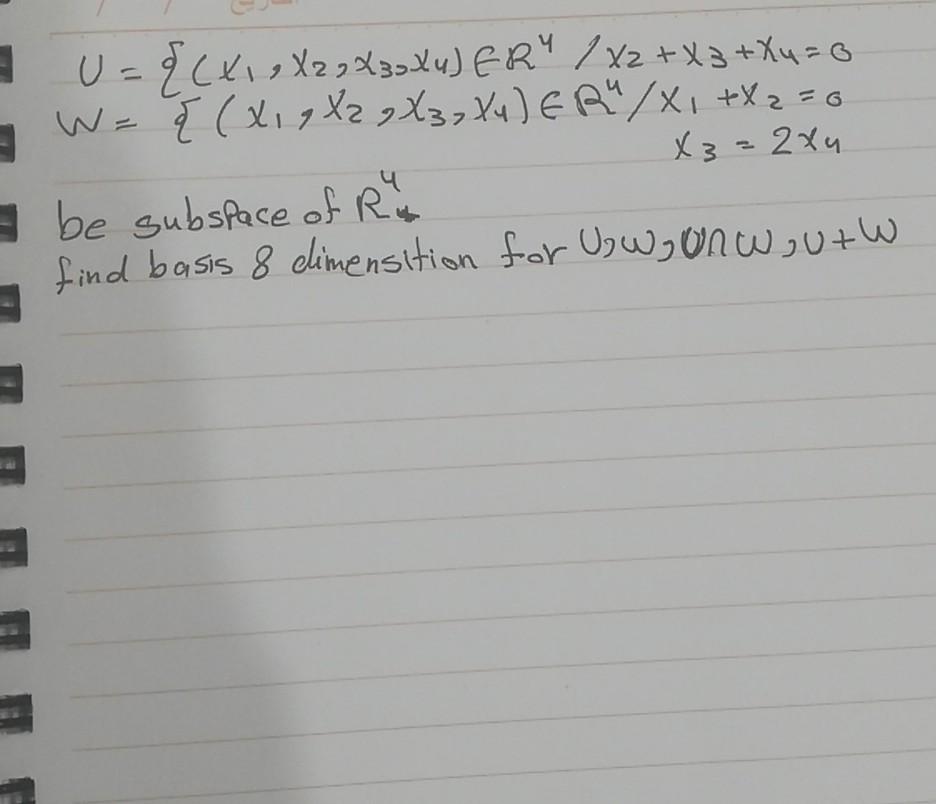 U = {(x₁, x₂, x₃, x₄) ∈ R⁴ / x₂ + x₃ + x₄ = 0
W = {(x₁, x₂, x₃, x₄) ∈ R⁴ / x₁ + x₂ = 0
x₃ = 2x₄
be subspace of R⁴
find basis & dimensition for U, W, U∩W, U+W